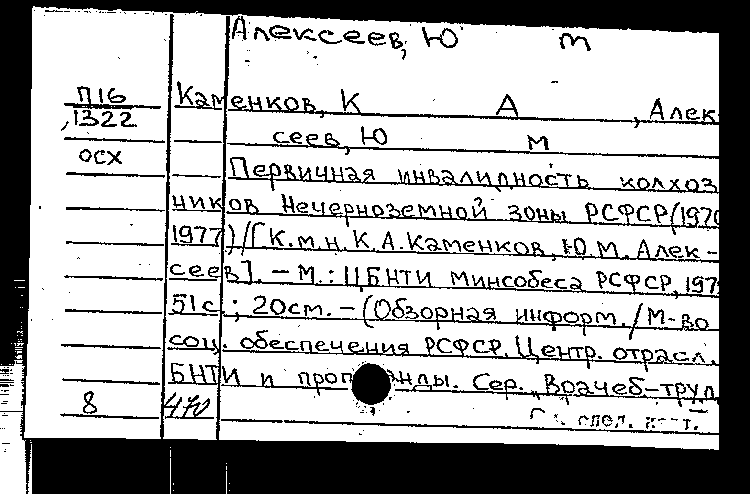 Алексеев, Ю м
П16 Каменков, К А , Алек
,1322 сеев, Ю м
осх Первичная инвалидность колхоз
ников Нечерноземной зоны РСФСР (1970
1977) / [К.м.н. К.А. Каменков, Ю.М. Алек-
сеев]. - М.: ЦБНТИ Минсобеса РСФСР, 197
51 с.; 20 см. - (Обзорная информ. / М-во
соц. обеспечения РСФСР. Центр. отрасл.
БНТИ и проп нды. Сер. „Врачеб-труд
8 470
См. след. карт.